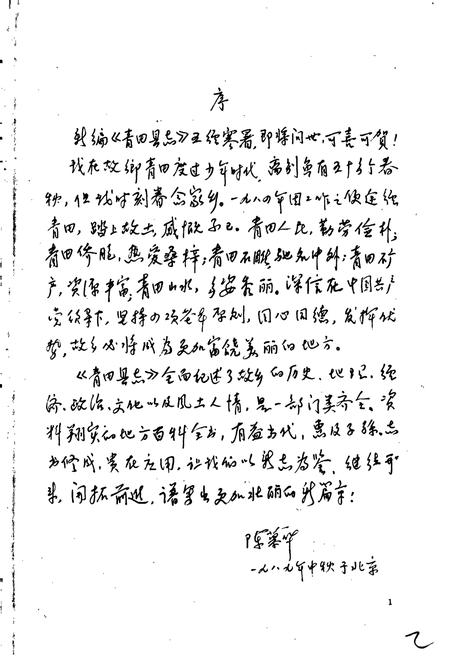 序
新编《青田县志》五经寒暑,即将问世,可喜可贺!
我在故乡青田度过少年时代,离别虽有五十多个春
秋,但我时刻眷念家乡。一九八四年因工作之便途经
青田,踏上故土,感慨不已。青田人民,勤劳俭朴;
青田侨胞,热爱桑梓;青田石雕,驰名中外;青田矿
产,资源丰富;青田山水,多姿秀丽。深信在中国共产
党领导下,坚持四项基本原则,同心同德,发挥优
势,故乡必将成为更加富饶美丽的地方。
《青田县志》全面记述了故乡的历史、地理、经
济、政治、文化以及风土人情,是一部门类齐全、资
料翔实的地方百科全书,有益当代,惠及子孙。志
书修成,贵在应用,让我们以新志为鉴,继往开
来,开拓前进,谱写出更加壮丽的新篇章!
陈慕华
一九八九年中秋于北京
1